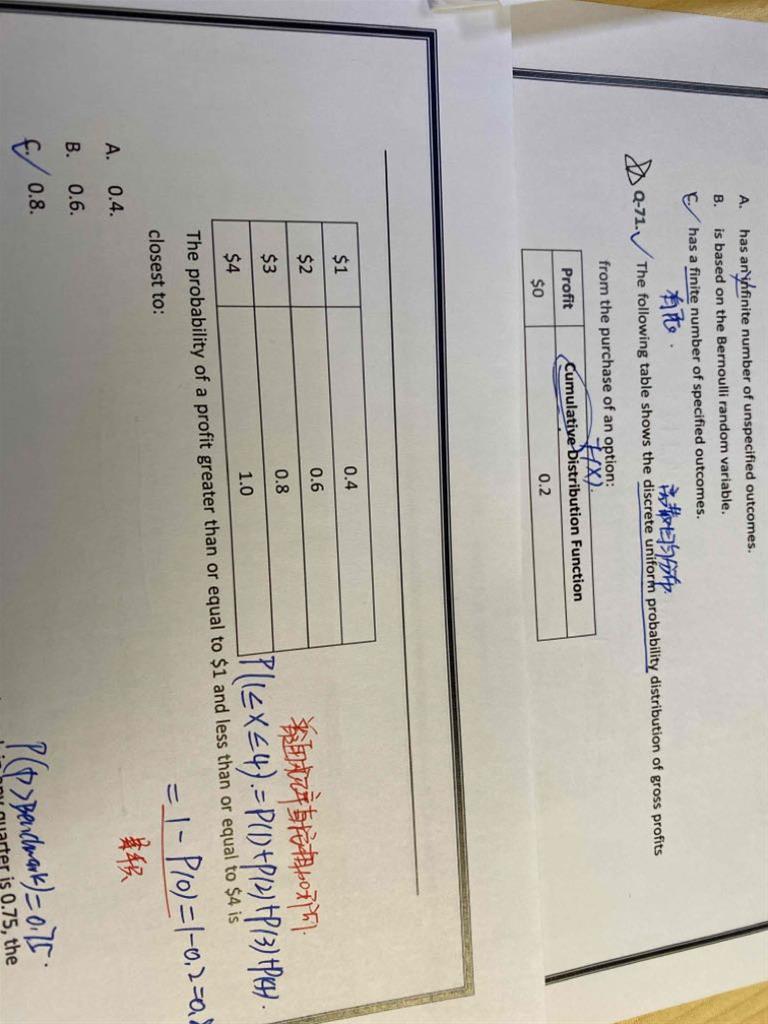 A. has an infinite number of unspecified outcomes.
B. is based on the Bernoulli random variable.
C. has a finite number of specified outcomes.
Q-71. The following table shows the discrete uniform probability distribution of gross profits
from the purchase of an option:
F(X).
Profit Cumulative Distribution Function
$0 0.2
$1 0.4
$2 0.6
$3 0.8
$4 1.0
P(1≤X≤4).=P(1)+P(2)+P(3)+P(4).
The probability of a profit greater than or equal to $1 and less than or equal to $4 is
closest to:
=1-P(0)=1-0.2=0.
A. 0.4.
B. 0.6.
C. 0.8.
=0.75.
quarter is 0.75, the